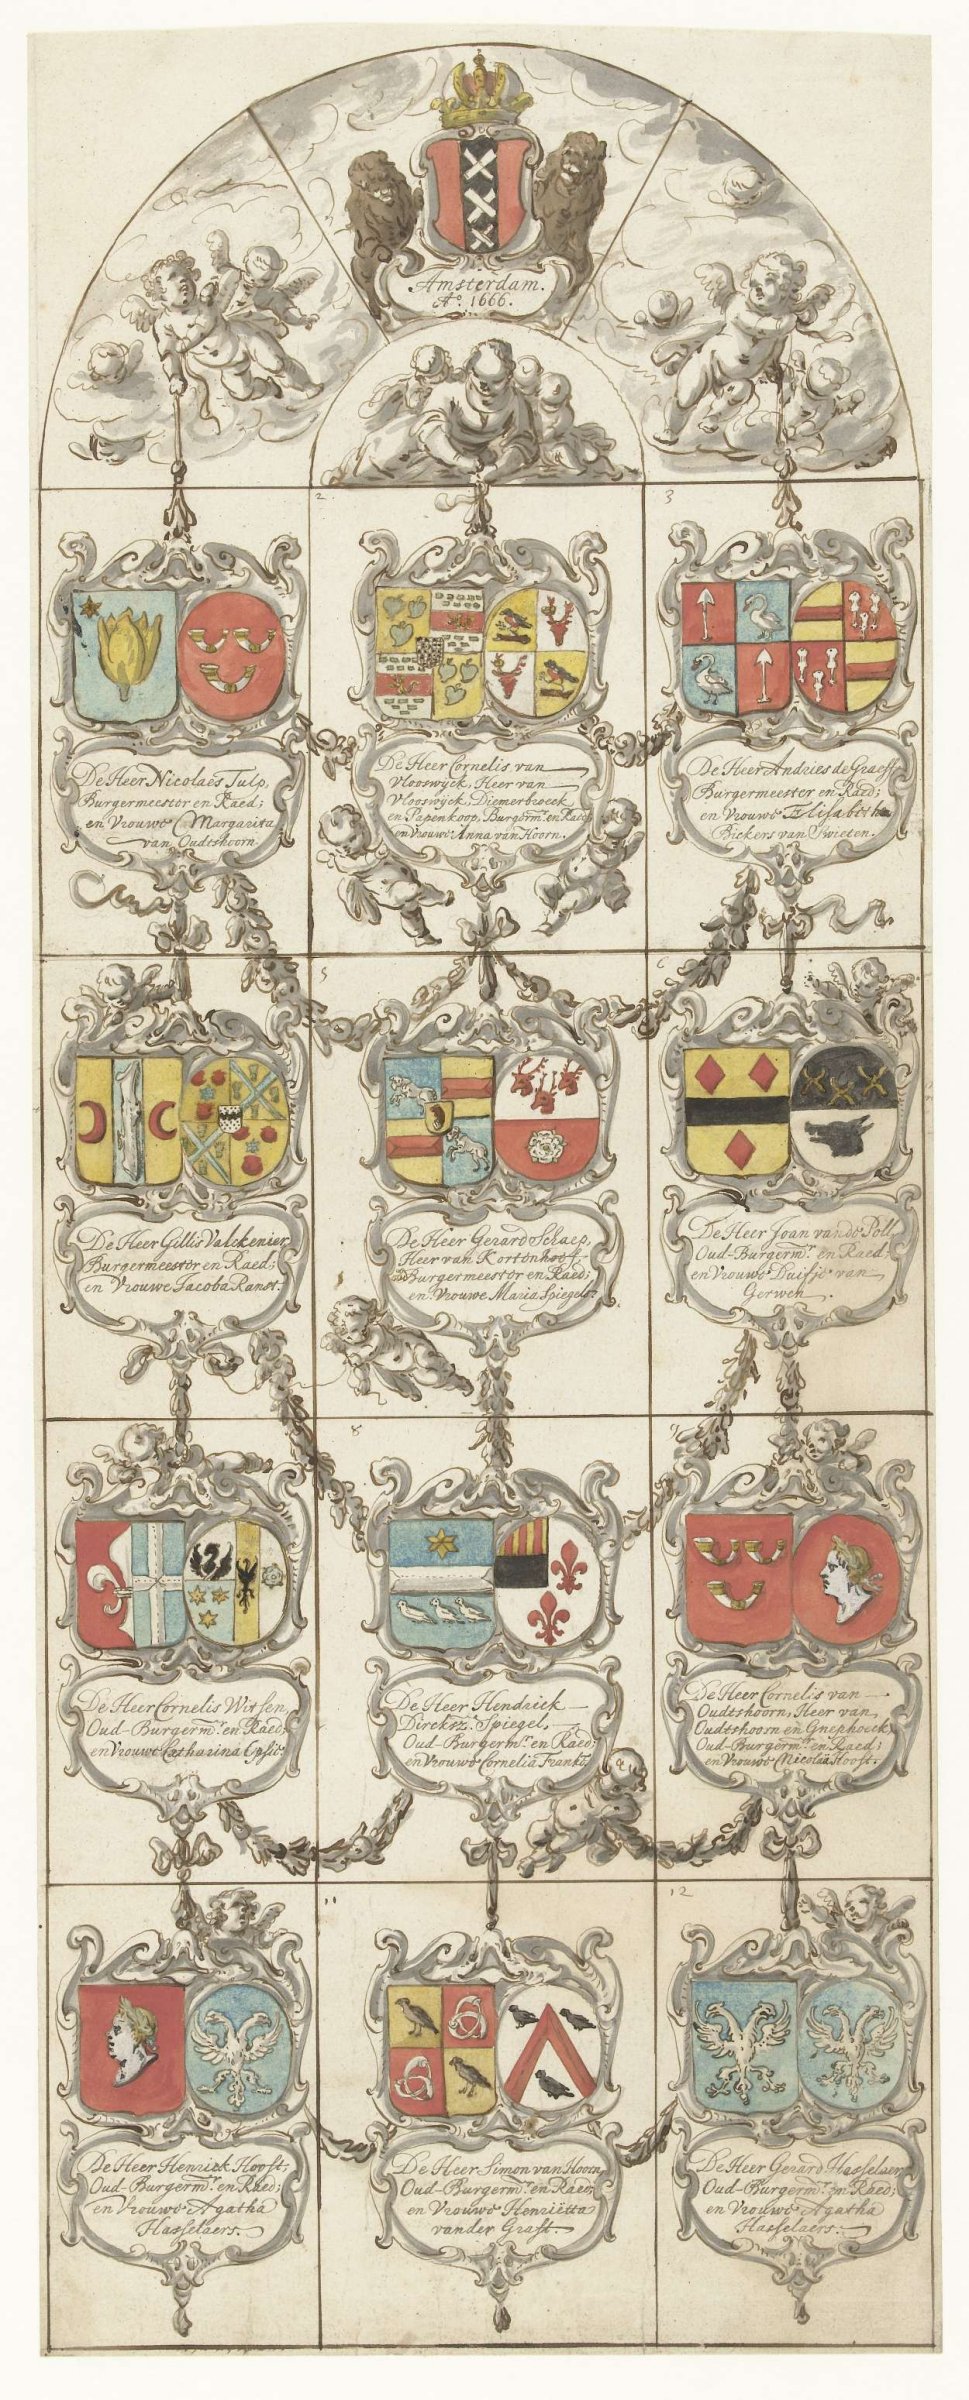 Amsterdam.
Aº. 1666.
2
3
De Heer Nicolaes Tulp,
Burgermeester en Raed;
en Vrouwe Margarita
van Oudtshoorn.
De Heer Cornelis van
Vlooswyck, Heer van
Vlooswyck, Diemerbroeck
en Papenkoop, Burgerm. en Raed;
en Vrouwe Anna van Hoorn.
De Heer Andries de Graeff,
Burgermeester en Raed;
en Vrouwe Elisabeth
Bickers van Swieten.
5
6
De Heer Gillis Valckenier,
Burgermeester en Raed;
en Vrouwe Jacoba Ranst.
De Heer Gerard Schaep,
Heer van Kortenhoef,
Burgermeester en Raed;
en Vrouwe Maria Spiegels.
De Heer Joan vande Poll,
Oud-Burgermr. en Raed;
en Vrouwe Duifje van
Gerwen.
8
De Heer Cornelis Witsen,
Oud-Burgermr. en Raed;
en Vrouwe Catharina Opsie.
De Heer Hendrick
Direksz. Spiegel,
Oud-Burgermr. en Raed;
en Vrouwe Cornelia Franks.
De Heer Cornelis van
Oudtshoorn, Heer van
Oudtshoorn en Gnephoeck,
Oud-Burgermr. en Raed;
en Vrouwe Nicolaa Hooft.
11
12
De Heer Henrick Hooft,
Oud-Burgermr. en Raed;
en Vrouwe Agatha
Hasselaers.
De Heer Simon van Hoorn,
Oud-Burgermr. en Raed;
en Vrouwe Henrietta
vander Graft.
De Heer Gerard Hasselaer,
Oud-Burgermr. en Raed;
en Vrouwe Agatha
Hasselaers.